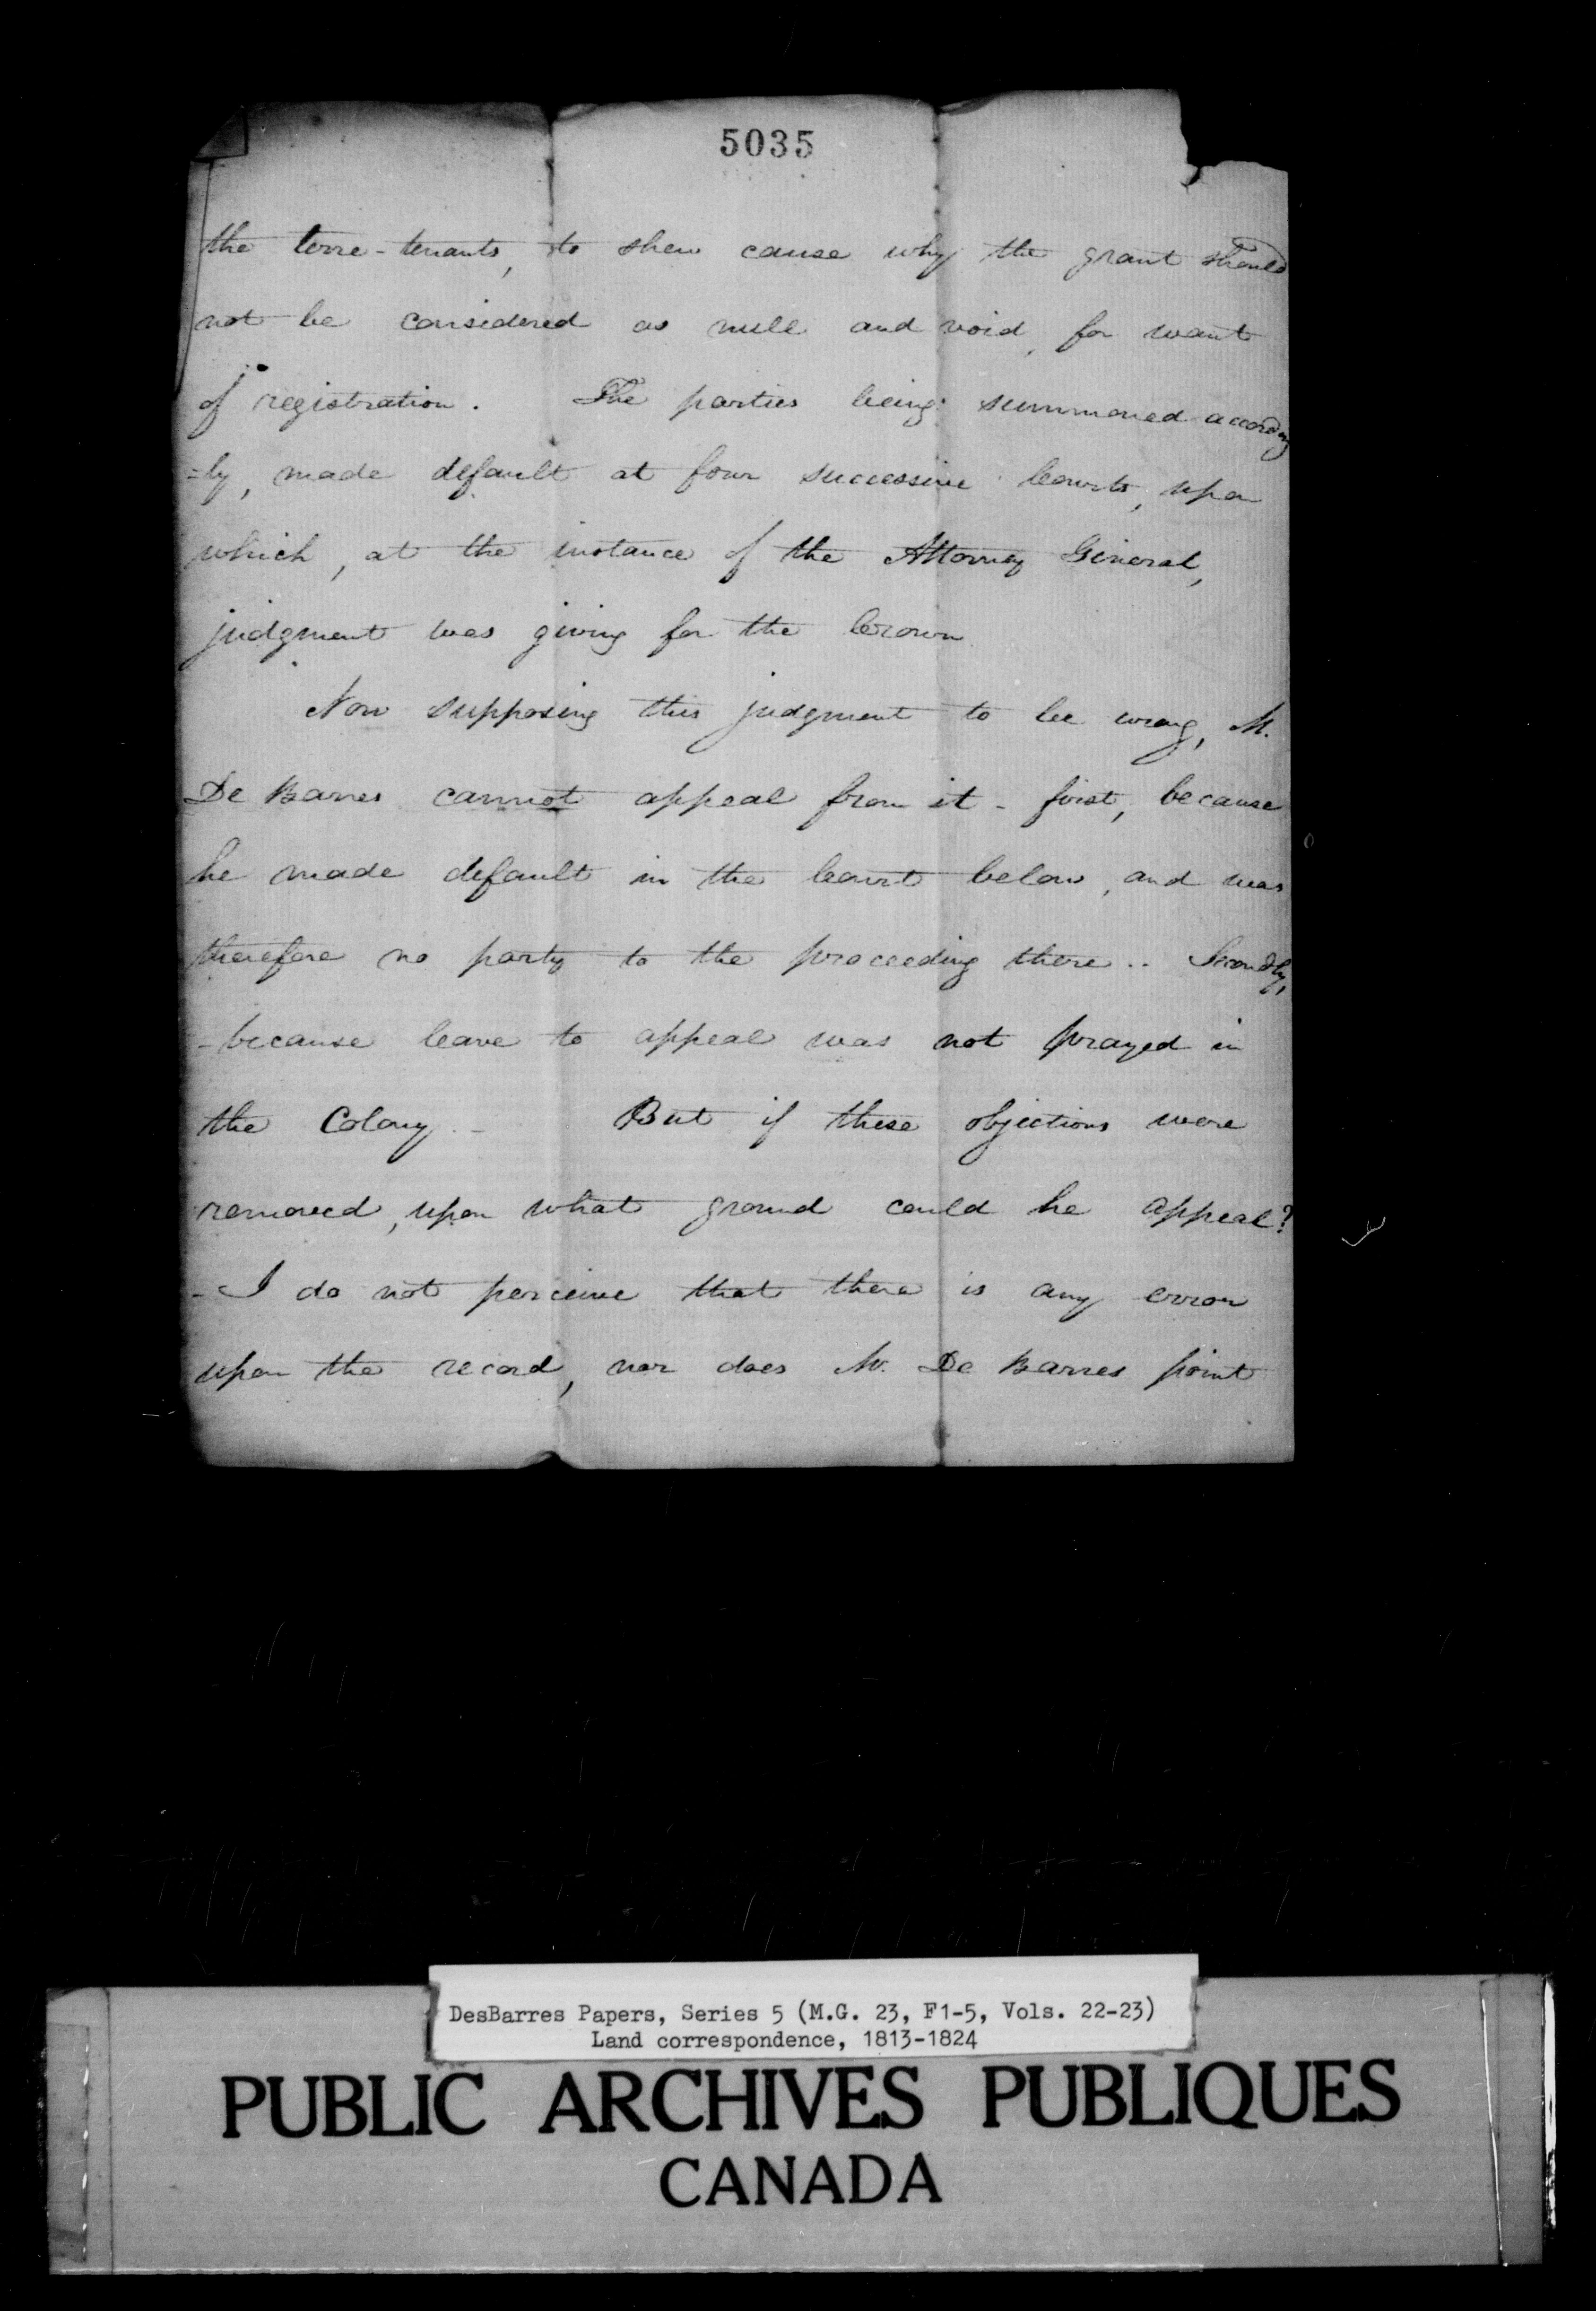 5035
the terre-tenants, to shew cause why the grant should
not be considered as null and void, for want
of registration. The parties being summoned according
=ly, made default at four successive Courts, upon
which, at the instance of the Attorney General,
judgment was giving for the Crown
Now supposing this judgment to be wrong, M.
De Barres cannot appeal from it - first, because
he made default in the Court below, and was
therefore no party to the proceeding there.. Secondly,
-because leave to appeal was not prayed in
the Colony.- But if these objections were
removed, upon what ground could he appeal?
-I do not perceive that there is any error
upon the record, nor does M. De Barres point
DesBarres Papers, Series 5 (M.G. 23, F1-5, Vols. 22-23)
Land correspondence, 1813-1824
PUBLIC ARCHIVES PUBLIQUES
CANADA